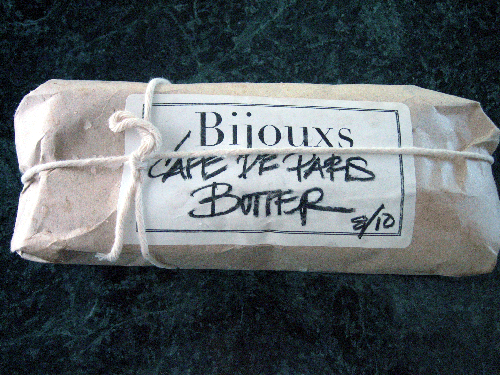 Bijouxs
CÁFE DE PARIS
BUTTER
8/10